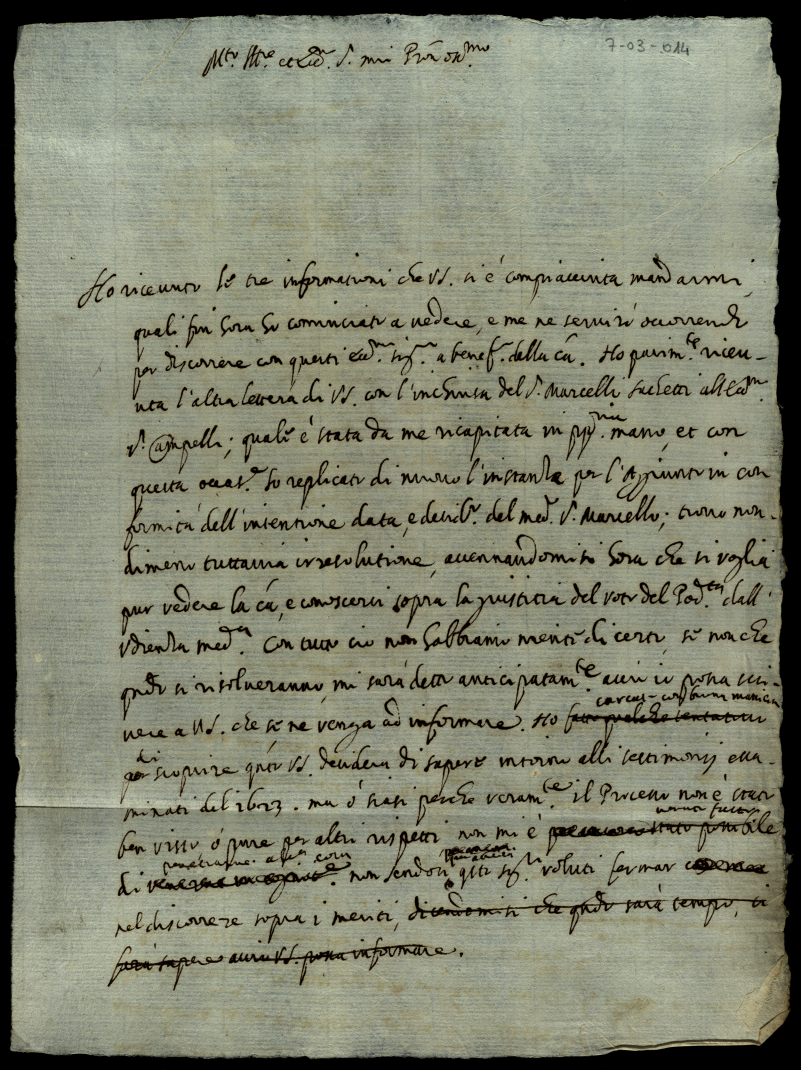 7-03-014
Mto. Illre. et Ecc. S. mio Pron oss.mo
Ho riceuuto le tre informationi che VS. si è compiacciuta mandarmi,
quali fin hora ho cominciato a vedere, e me ne seruirò occorrendo
per discorrere con questi ecc.mi sig.ri a benef.o della ca. Ho parim.te riceu-
uta l'altra lettera di VS. con l'inclusa del S. Marcello Sachetti all'Ecc.mo
S. Campelli; quale è stata da me ricapitata in pp.ria mano, et con
questa occas.e ho replicato di nuouo l'instanza per l'Aggiunto in con
formità dell'intentione data, e desid.o del med. S. Marcello; trouo non-
dimeno tuttauia irresolutione, accennandomisi hora che si voglia
pur vedere la ca, e conoscerci sopra la giustitia del voto del Pod.tà dall'
vdienza med.a Con tutto ciò non habbiamo niente di certo, se non che
qndo si risolueranno, mi sarà detto anticipatam.te acciò io possa scri-
uere a VS. che se ne venga ad informare. Ho fatto qualche tentatiuo
cercato con buona maniera
di
per scoprire qnto VS. desidera di sapere intorno alli testimonij essa-
minati del 1623. ma ò siasi perche veram.te il Processo non è stato
ben visto ò pure per altri rispetti non mi è stato possibile
venuto fatto
di penetrarne
non sendosi qsti sig.ri voluti fermar
nel discorrere sopra i meriti, dicendomisi che qndo sarà tempo, si
farà sapere acciò VS. possa informare.